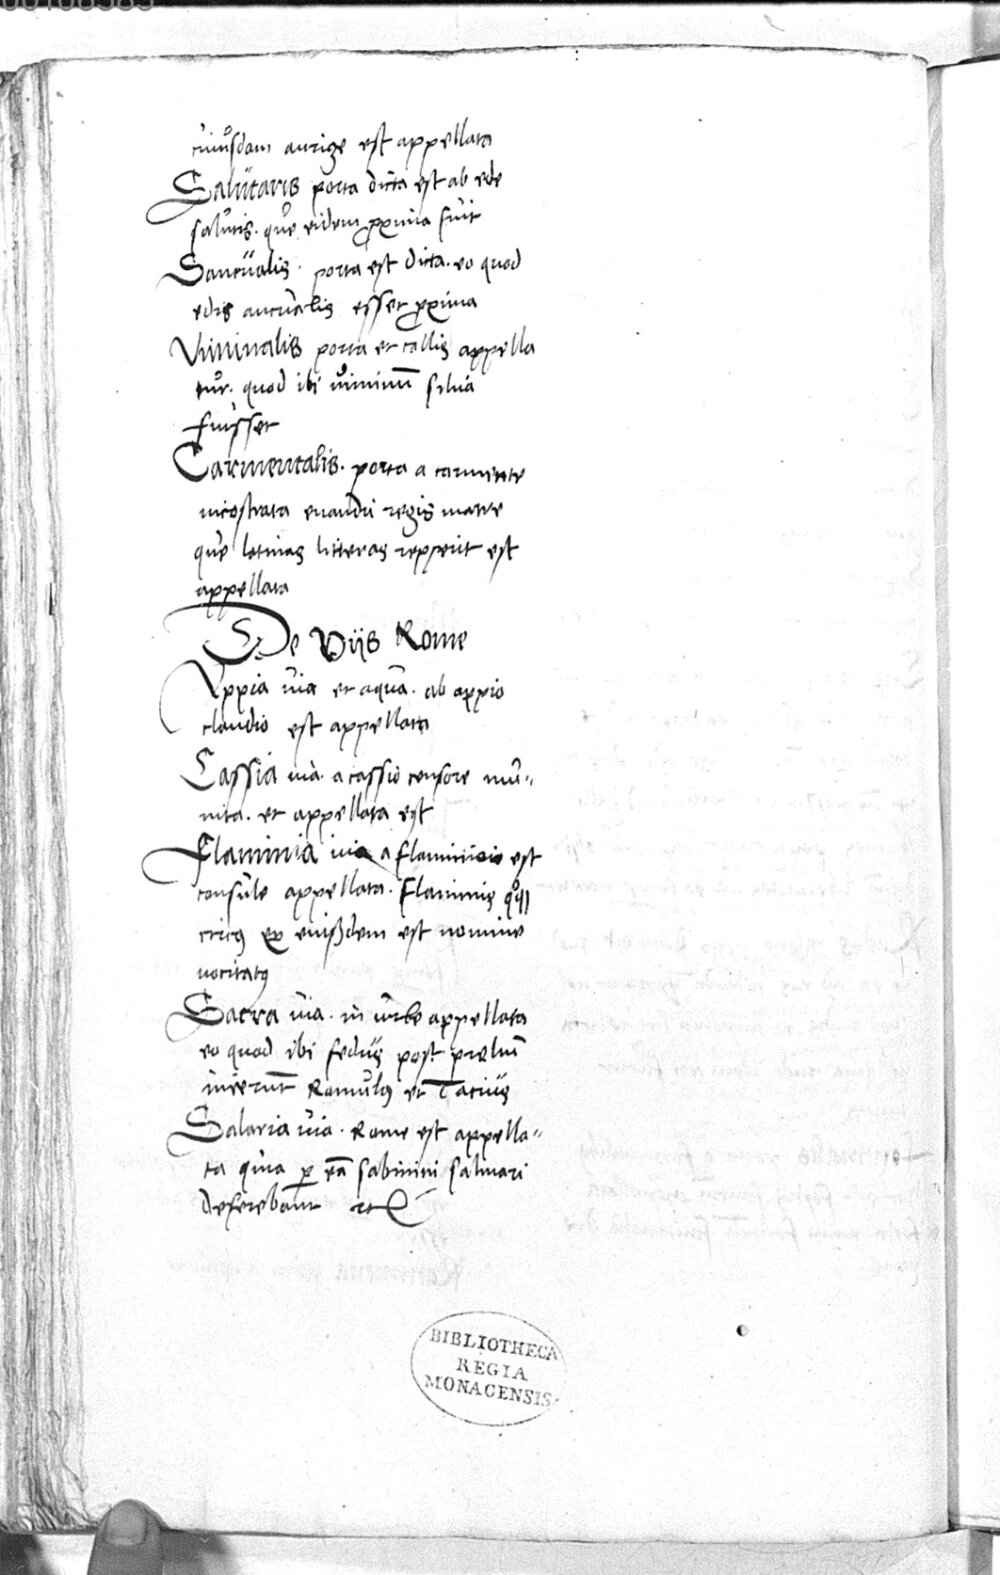 cuiusdam aurige est appellata
Salutaris porta dicta est ab ede
salutis. que eidem proxima fuit
Sanctualis. porta est dicta. eo quod
edis anctualis esset proxima
Viminalis porta et collis appella
tur. quod ibi viminū silua
fuisset
Carmentalis. porta a carmente
nicostrata euandri regis matre
que latinas litteras repperit est
appellata
De viis Rome
Appia via et aqua. ab appio
claudio est appellata
Cassia via. a cassio censore mu=
nita. et appellata est
Flaminia via a flaminio est
consule appellata. Flaminis
circus ex eiusdem est nomine
vocitatus
Sacra via. in vrbe appellata
eo quod ibi fedus post preliū
inierunt Romulus et Tatius
Salaria via. Rome est appella=
ta quia per eā sabinini salinari
deferebant etc
BIBLIOTHECA
REGIA
MONACENSIS.